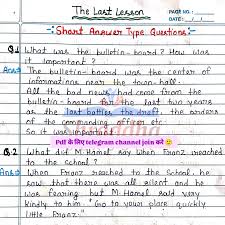 The Last Lesson
PAGE NO.:
DATE: / /
Short Answer Type Questions:
Q.1 What was the bulletin-board? How was
it important?
Ans:- The bulletin-board was the center of
informations near the town-hall.
All the bad news had come from the
bulletin-board for the last two years
as the lost battles, the draft, the orders
of the commanding officer etc.
So it was important.
Pdf के लिए telegram channel join करे 🙂
Q.2 What did M. Hamel say when Franz reached
to the school?
Ans:- When Franz reached to the school, he
saw that there was all silent and he
was fearing but M. Hamel said very
kindly to him. "Go to your place quickly
little Franz."